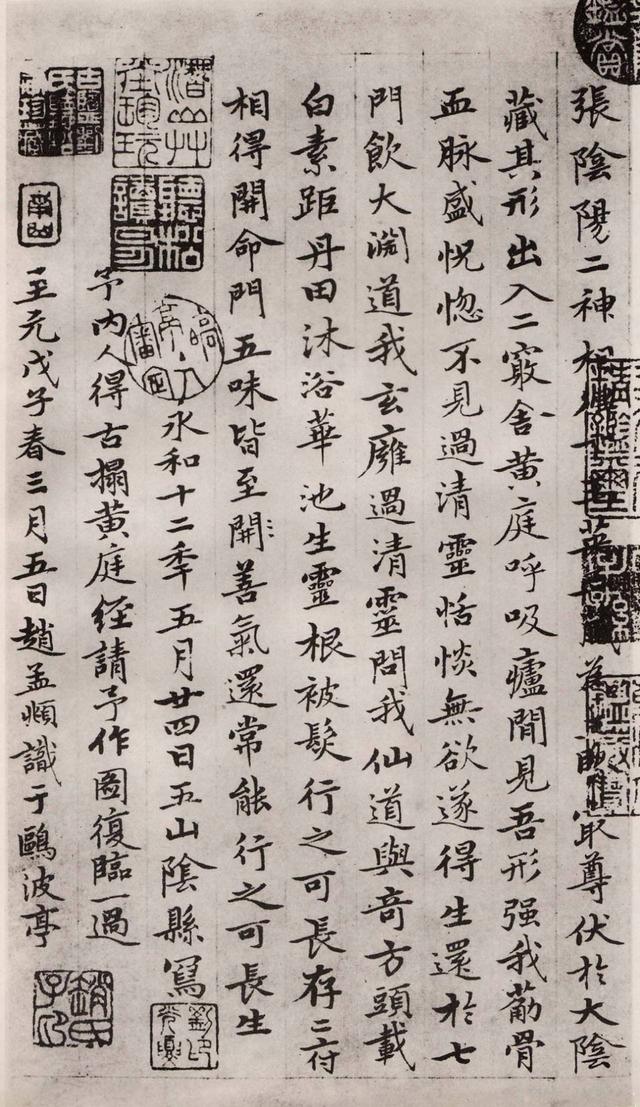 張陰陽二神相為冣尊伏於大陰
藏其形出入二竅舍黄庭呼吸廬閒見吾形强我筋骨
血脉盛恍惚不見過清靈恬惔無欲遂得生還於七
門飲大淵道我玄廱過清靈問我仙道與奇方頭載
白素距丹田沐浴華池生靈根被髮行之可長存二府
相得開命門五味皆至開善氣還常能行之可長生
永和十二年五月廿四日五山陰縣寫
予内人得古搨黄庭經請予作圖復臨一過
至元戊子春三月五日趙孟頫識于鷗波亭
趙氏子昂